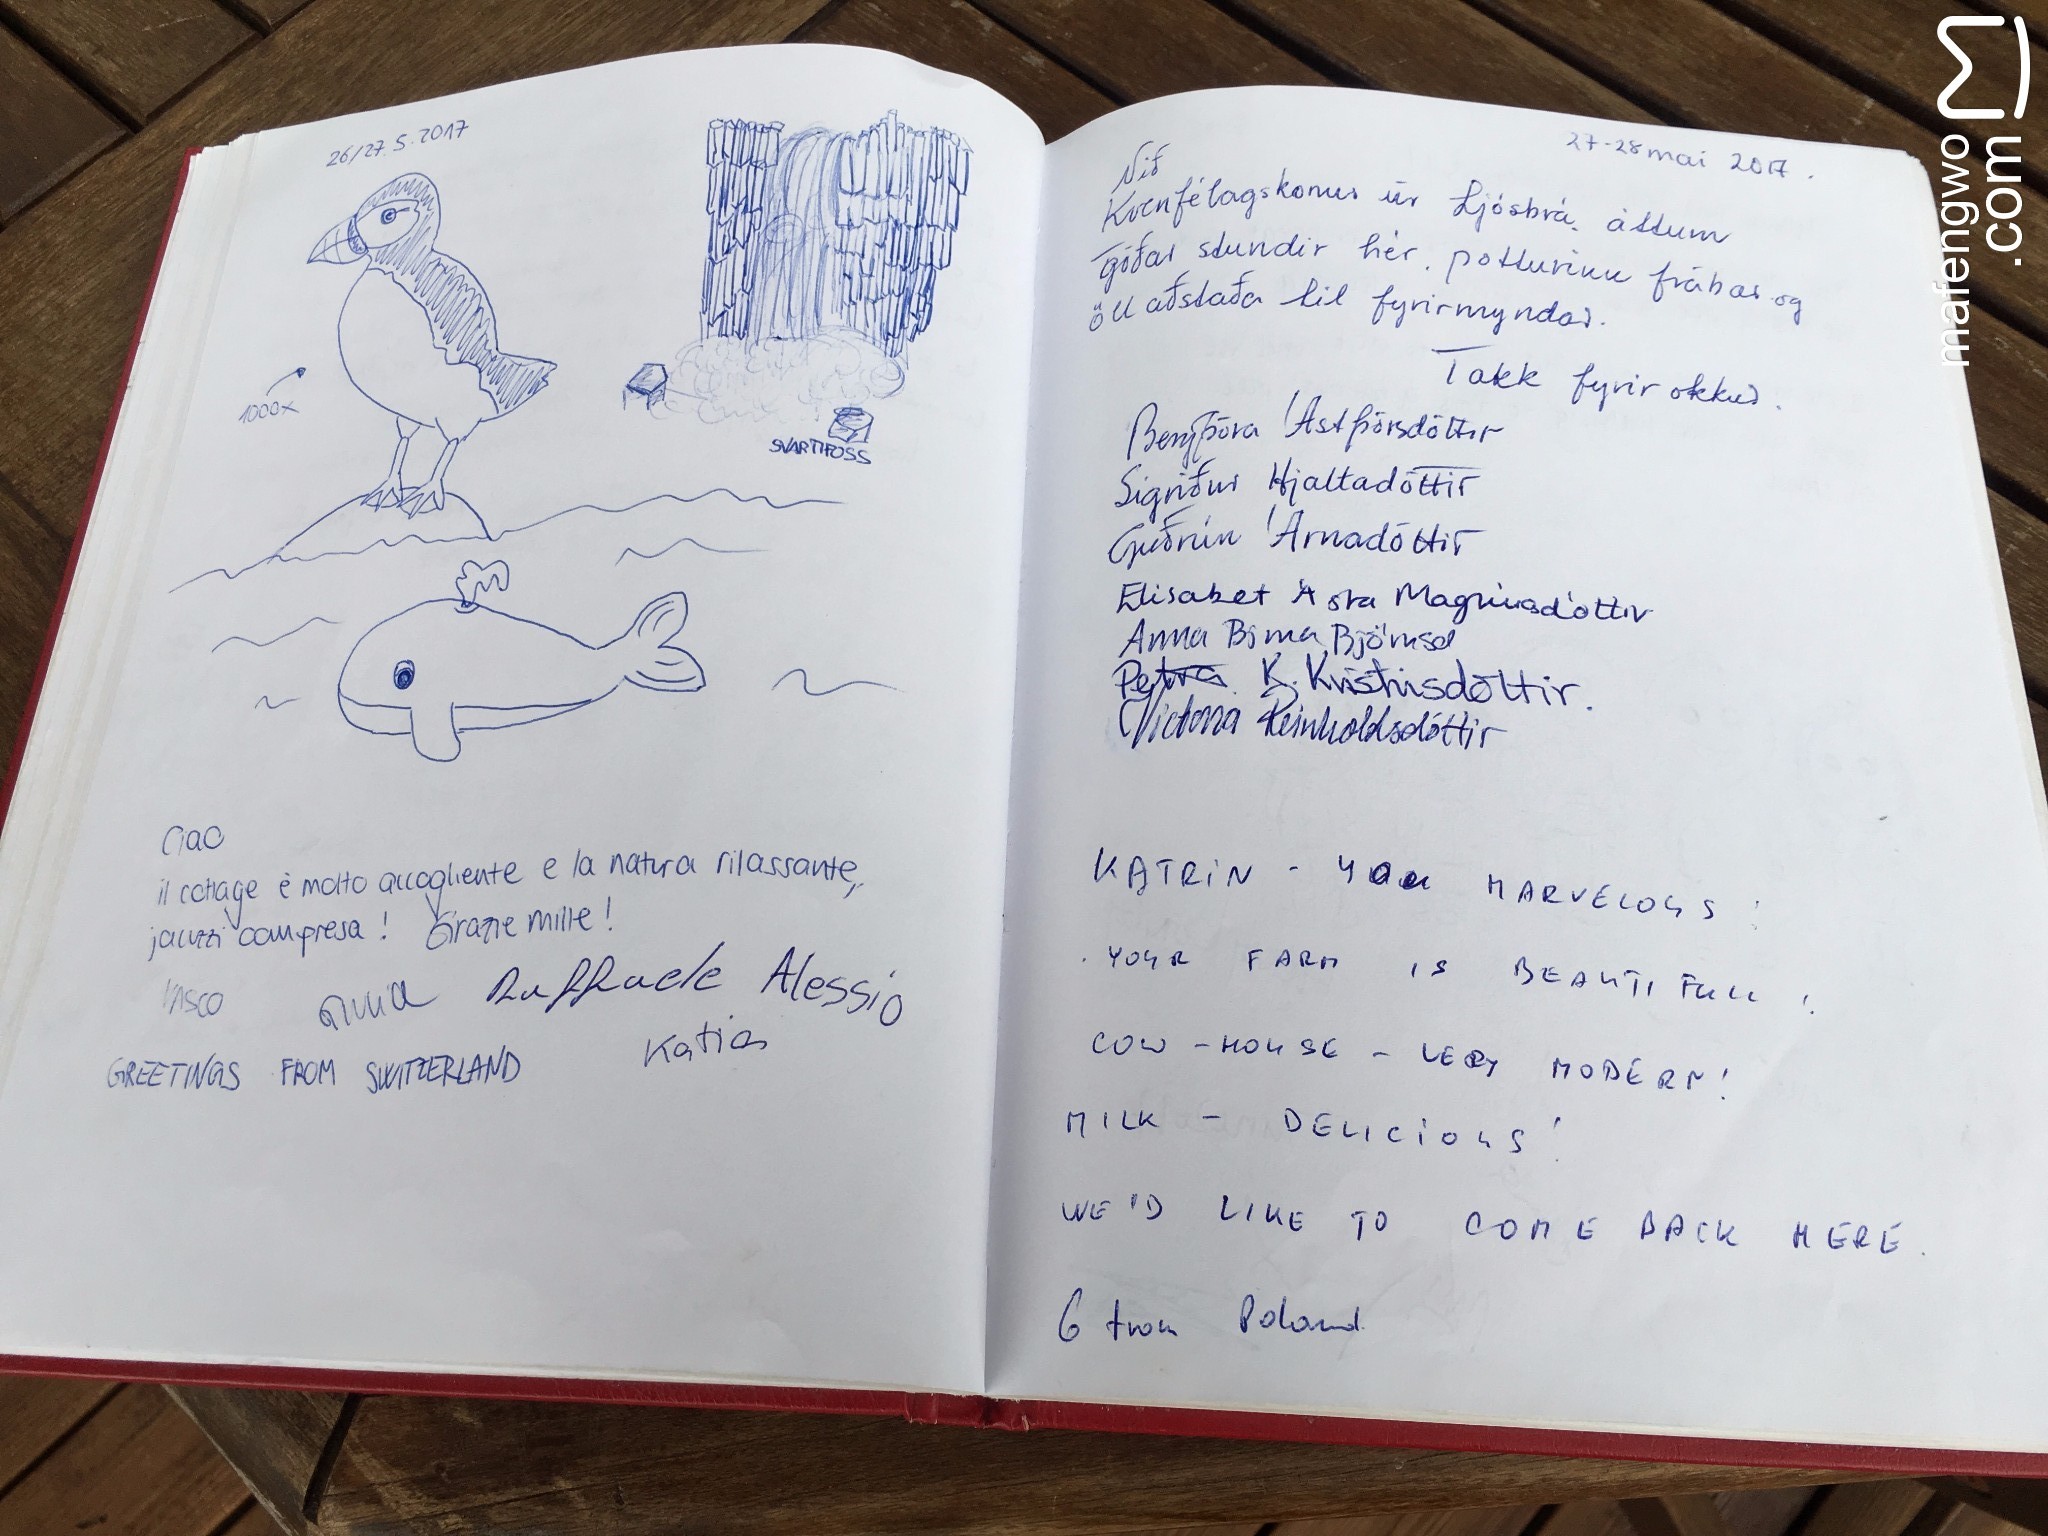 26/27.5.2017
1000x
SVARTIFOSS
Ciao
il cottage è molto accogliente e la natura rilassante,
jacuzzi compresa! Grazie mille!
VASCO Giulia Raffaele Alessio
Katia
GREETINGS FROM SWITZERLAND
27-28 mai 2017.
Við
Kvenfélagskonur úr Ljósbrá, áttum
góðar stundir hér. potturinn frábær og
öll aðstaða til fyrirmyndar.
Takk fyrir okkur.
Bergþóra Ástþórsdóttir
Sigríður Hjaltadóttir
Guðrún Árnadóttir
Elísabet Ásta Magnúsdóttir
Anna Björnsd
Petra K. Kristinsdóttir.
Victoria Reinholdsdóttir
KATRIN - you MARVELOUS!
YOUR FARM IS BEAUTIFULL!
COW-HOUSE - VERY MODERN!
MILK - DELICIOUS!
WE'D LIKE TO COME BACK HERE.
6 from Poland
mafengwo
.com